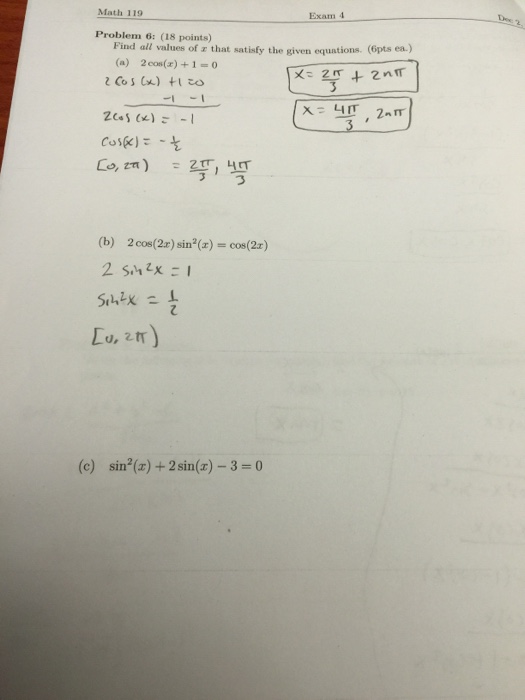 Math 119 Exam 4 Dec 2
Problem 6: (18 points)
Find all values of x that satisfy the given equations. (6pts ea.)
(a) 2cos(x) + 1 = 0
2 Cos (x) + 1 = 0
-1 -1
2cos (x) = -1
Cos(x) = - 1/2
[0, 2π) = 2π/3, 4π/3
x = 2π/3 + 2nπ
x = 4π/3, 2nπ
(b) 2 cos(2x) sin²(x) = cos(2x)
2 sin²x = 1
Sin²x = 1/2
[0, 2π)
(c) sin²(x) + 2 sin(x) − 3 = 0